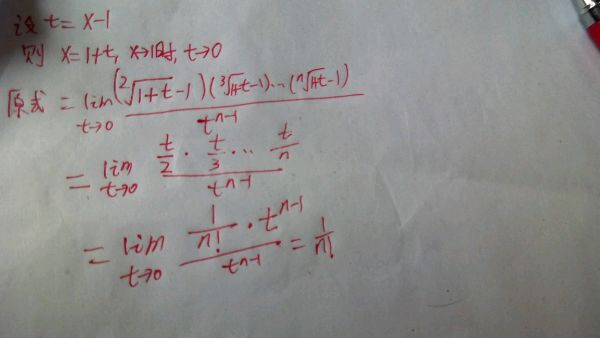 设 t = x-1
则 x=1+t, x→1时, t→0
原式 = lim_{t→0} \frac{(\sqrt[2]{1+t}-1)(\sqrt[3]{1+t}-1)\cdots(\sqrt[n]{1+t}-1)}{t^{n-1}}
= lim_{t→0} \frac{\frac{t}{2}·\frac{t}{3}\cdots\frac{t}{n}}{t^{n-1}}
= lim_{t→0} \frac{\frac{1}{n!}·t^{n-1}}{t^{n-1}} = \frac{1}{n!}